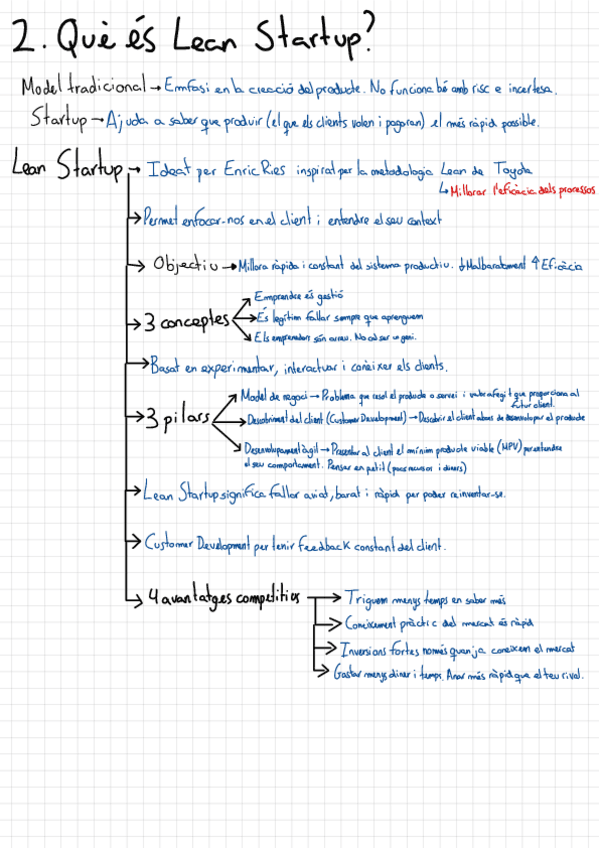 2. Què és Lean Startup?
Model tradicional → Emfasi en la creació del producte. No funciona bé amb risc e incertesa.
Startup → Ajuda a saber que produir (el que els clients volen i pagaran) el més ràpid possible.
Lean Startup → Ideat per Enric Ries inspirat per la metodologia Lean de Toyota
↳ Millorar l'eficàcia dels processos
→ Permet enfocar-nos en el client i entendre el seu context
→ Objectiu → Millora ràpida i constant del sistema productiu. ↓Malbaratament ↑Eficàcia
→ 3 conceptes
→ Emprendre és gestió
→ És legítim fallar sempre que aprenguem
→ Els emprenedors són arreu. No cal ser un geni.
→ Basat en experimentar, interactuar i conèixer els clients.
→ 3 pilars
→ Model de negoci → Problema que resol el producte o servei i valor afegit que proporciona al
futur client.
→ Descobriment del client (Customer Development) → Descobrir el client abans de desenvolupar el producte
→ Desenvolupament àgil → Presentar al client el mínim producte viable (MPV) per entendre
el seu comportament. Pensar en petit (pocs recursos i diners)
→ Lean Startup significa fallar aviat, barat i ràpid per poder reinventar-se.
→ Customer Development per tenir feedback constant del client.
→ 4 avantatges competitius
→ Triguem menys temps en saber més
→ Coneixement pràctic del mercat és ràpid
→ Inversions fortes només quan ja coneixem el mercat
→ Gastar menys diner i temps. Anar més ràpid que el teu rival.